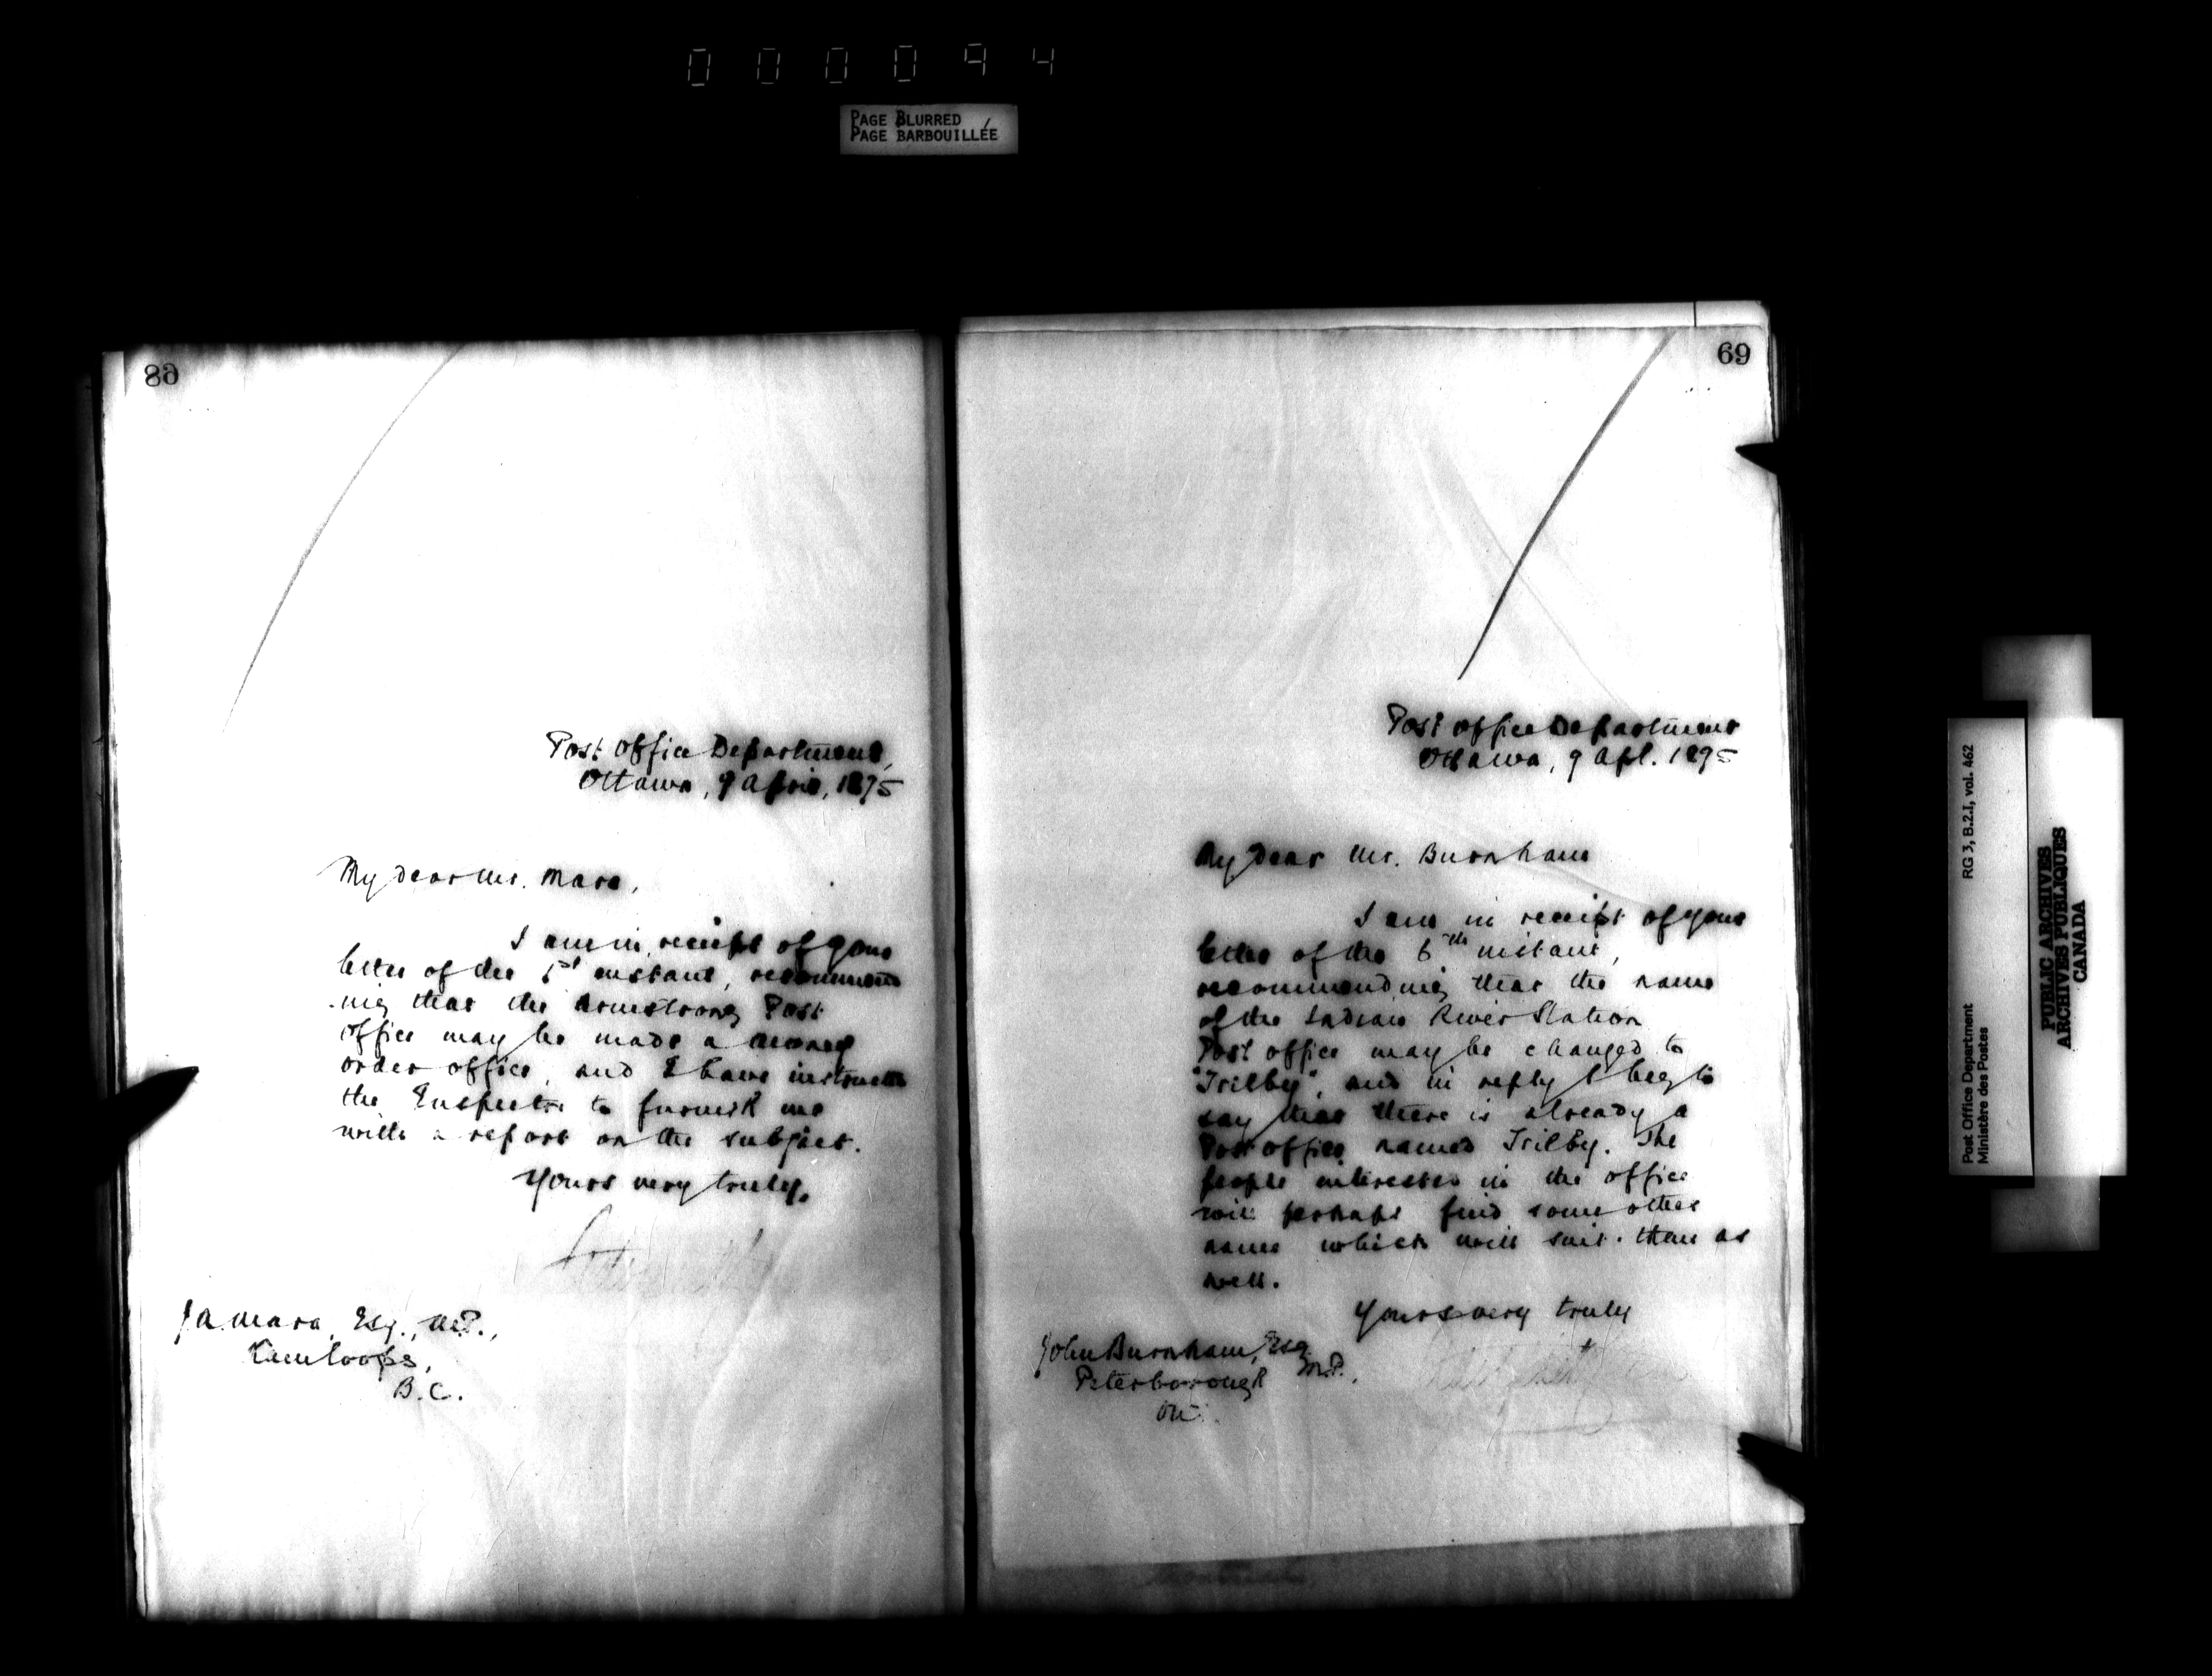 000094
PAGE BLURRED
PAGE BARBOUILLÉE
68
Post Office Department,
Ottawa, 9 April, 1895
My dear Mr. Mara,
I am in receipt of your
letter of the 1st instant, recommend
-ing that the Armstrong Post
Office may be made a money
order office, and I have instructed
the Inspector to furnish me
with a report on the subject.
Yours very truly,
J A Mara, Esq., M.P.,
Kamloops,
B.C.
69
Post Office Department
Ottawa, 9 Apl. 1895
My dear Mr. Burnham
I am in receipt of your
letter of the 6th instant,
recommending that the name
of the Indian River Station
Post office may be changed to
"Trilby", and in reply I beg to
say that there is already a
Post office named Trilby. The
people interested in the office
will perhaps find some other
name which will suit them as
well.
Yours very truly
John Burnham, Esq
M.P.,
Peterborough
Ont.
Post Office Department
Ministère des Postes
RG 3, B.2.I, vol. 462
PUBLIC ARCHIVES
ARCHIVES PUBLIQUES
CANADA